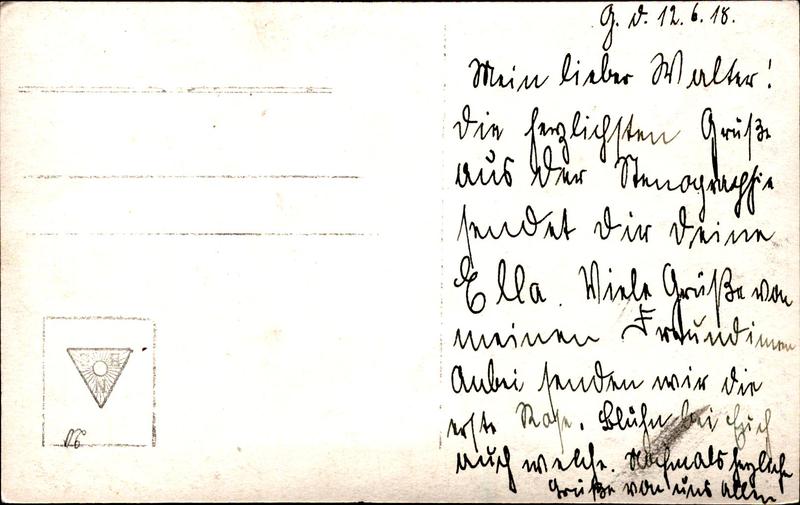 G. d. 12.6.18.
Mein lieber Walter!
Die herzlichsten Grüße
aus der Stenographie
sendet dir deine
Ella. Viele Grüße von
meinen Freundinnen
Anbei senden wir die
erste Rose. Blühn bei Euch
auch welche. Nochmals herzliche
Grüße von uns allen